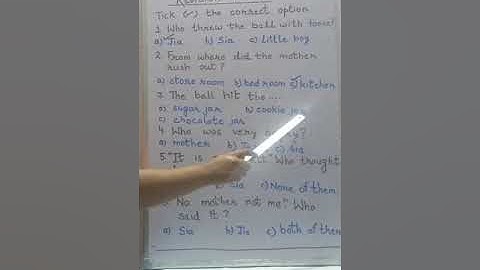 Tick (✓) the correct option
1. Who threw the ball with force?
a) Jia b) Sia c) little boy
2. From where did the mother
rush out?
a) store room b) bed room c) kitchen
3. The ball hit the ....
a) sugar jar b) cookie jar
c) chocolate jar
4. Who was very
a) mother b) c) Sia
5. "It is Who thought
Sia c) None of them
No mother not me" Who
said it?
a) Sia b) Jia c) both of them